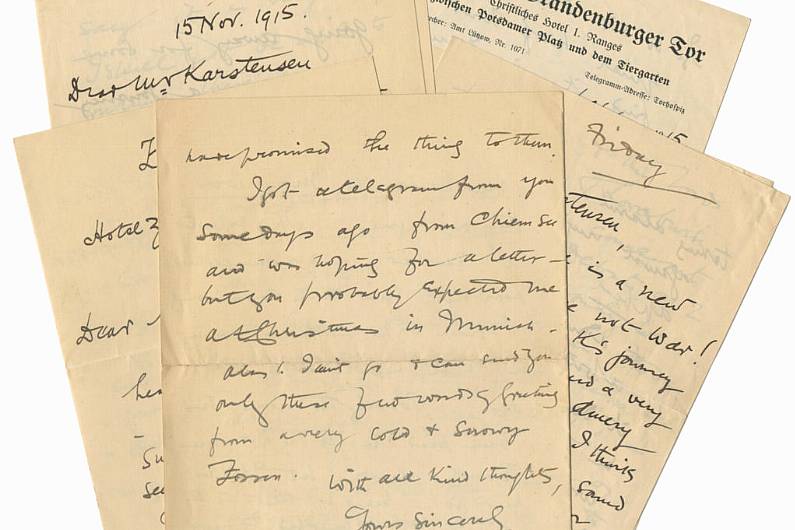 15 Nov. 1915.
Dear Mr Karstensen
Brandenburger Tor
Christliches Hotel I. Ranges
zwischen Potsdamer Platz und dem Tiergarten
Amt Lützow, Nr. 1071
Telegramm-Adresse: Torhospiz
15
Hotel
Dear
have promised the thing to them.
I got a telegram from you
some days ago from Chiemsee
and was hoping for a letter –
but you probably expected me
at Christmas in Munich –
alas! I can't go & can send you
only these few words of greeting
from a very cold & snowy
Zossen.
With all kind thoughts,
Yours sincerely
Friday
is a new
not War!
His journey
a very
I think